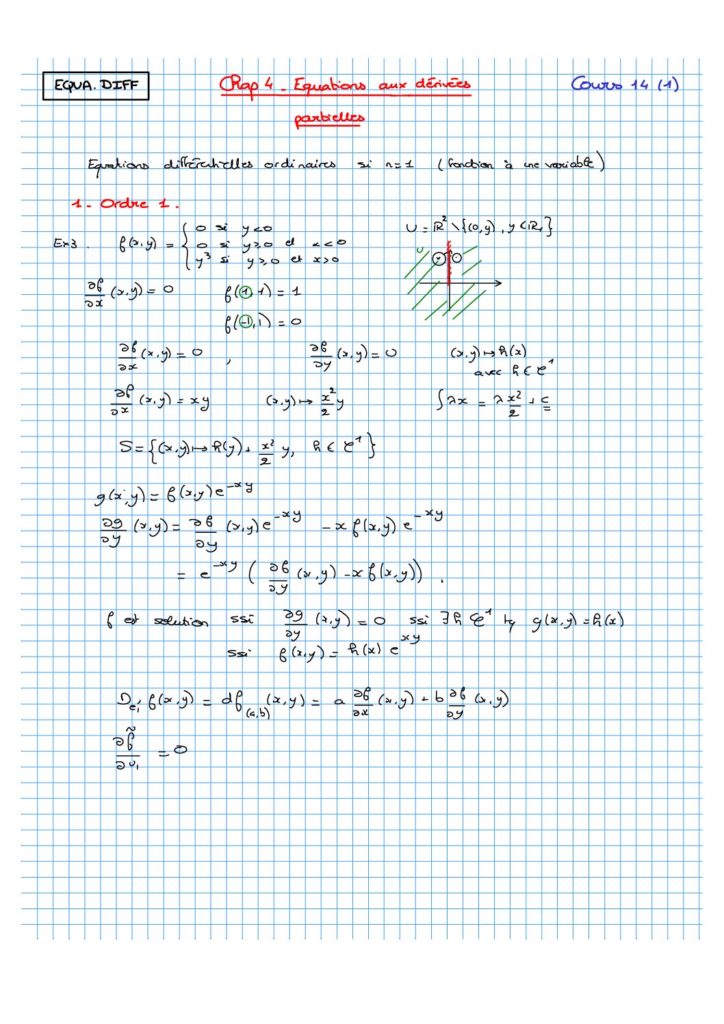 EQUA. DIFF
Chap 4 - Equations aux dérivées
partielles
Cours 14 (1)
Equations différentielles ordinaires si n=1 (fonction à une variable)
1 - Ordre 1.
Ex3. f(x,y) = { 0 si y<0
0 si y⩾0 et x<0
y³ si y⩾0 et x>0
U = ℝ² \ {(0,y), y∈ℝ₊}
U
∂f/∂x (x,y) = 0 f(1,1) = 1
f(-1,1) = 0
∂f/∂x (x,y) = 0 , ∂f/∂y (x,y) = 0 (x,y) ↦ h(x)
avec h ∈ C¹
∂f/∂x (x,y) = xy (x,y) ↦ x²/2 y ∫λx = λ x²/2 + c
S = {(x,y) ↦ h(y) + x²/2 y, h ∈ C¹}
g(x,y) = f(x,y) e^-xy
∂g/∂y (x,y) = ∂f/∂y (x,y) e^-xy - x f(x,y) e^-xy
= e^-xy ( ∂f/∂y (x,y) - x f(x,y)) .
f est solution ssi ∂g/∂y (x,y) = 0 ssi ∃ h C¹ tq g(x,y) = h(x)
ssi f(x,y) = h(x) e^xy
D_e₁' f(x,y) = df_(a,b) (x,y) = a ∂f/∂x (x,y) + b ∂f/∂y (x,y)
∂f̃/∂u₁ = 0